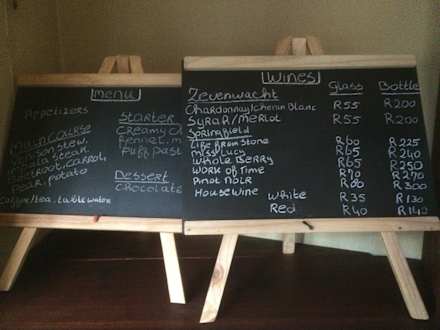 Menu
Appetizers
Starter
Creamy
Main Course
Fennel, m
Venison stew,
Puff Past
Steak
Beetroot, carrot,
Pear, potato
Dessert
Chocolate
Coffee/tea, table water
Wines
Glass
Bottle
Zevenwacht
Chardonnay/Chenin Blanc R55 R200
Syrah/Merlot R55 R200
Springfield
Life From Stone R60 R225
Miss Lucy R65 R240
Whole Berry R65 R250
Work of Time R70 R270
Pinot Noir R80 R300
Housewine White R35 R130
Red R40 R140